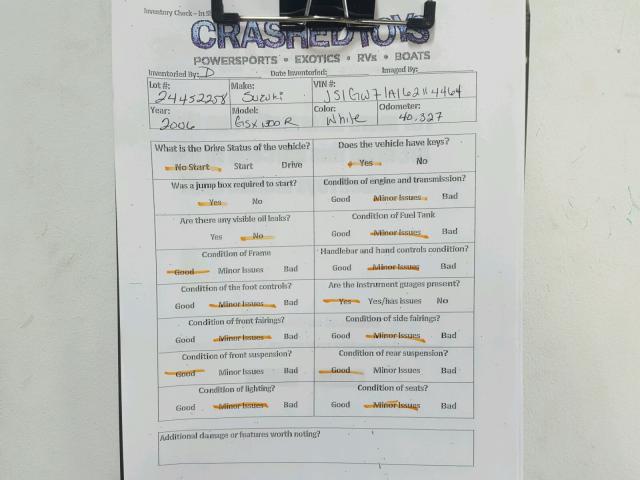 Inventory Check – In
CRASHEDTOYS
POWERSPORTS • EXOTICS • RVs • BOATS
Inventoried By: D Date Inventoried: Imaged By:
Lot #: Make: VIN #:
24452258 Suzuki JS1GW71A162114464
Year: Model: Color: Odometer:
2006 GSX1300R White 40,327
What is the Drive Status of the vehicle? Does the vehicle have keys?
No Start Start Drive Yes No
Was a jump box required to start? Condition of engine and transmission?
Yes No Good Minor Issues Bad
Are there any visible oil leaks? Condition of Fuel Tank
Yes No Good Minor Issues Bad
Condition of Frame Handlebar and hand controls condition?
Good Minor Issues Bad Good Minor Issues Bad
Condition of the foot controls? Are the instrument guages present?
Good Minor Issues Bad Yes Yes/has issues No
Condition of front fairings? Condition of side fairings?
Good Minor Issues Bad Good Minor Issues Bad
Condition of front suspension? Condition of rear suspension?
Good Minor Issues Bad Good Minor Issues Bad
Condition of lighting? Condition of seats?
Good Minor Issues Bad Good Minor Issues Bad
Additional damage or features worth noting?